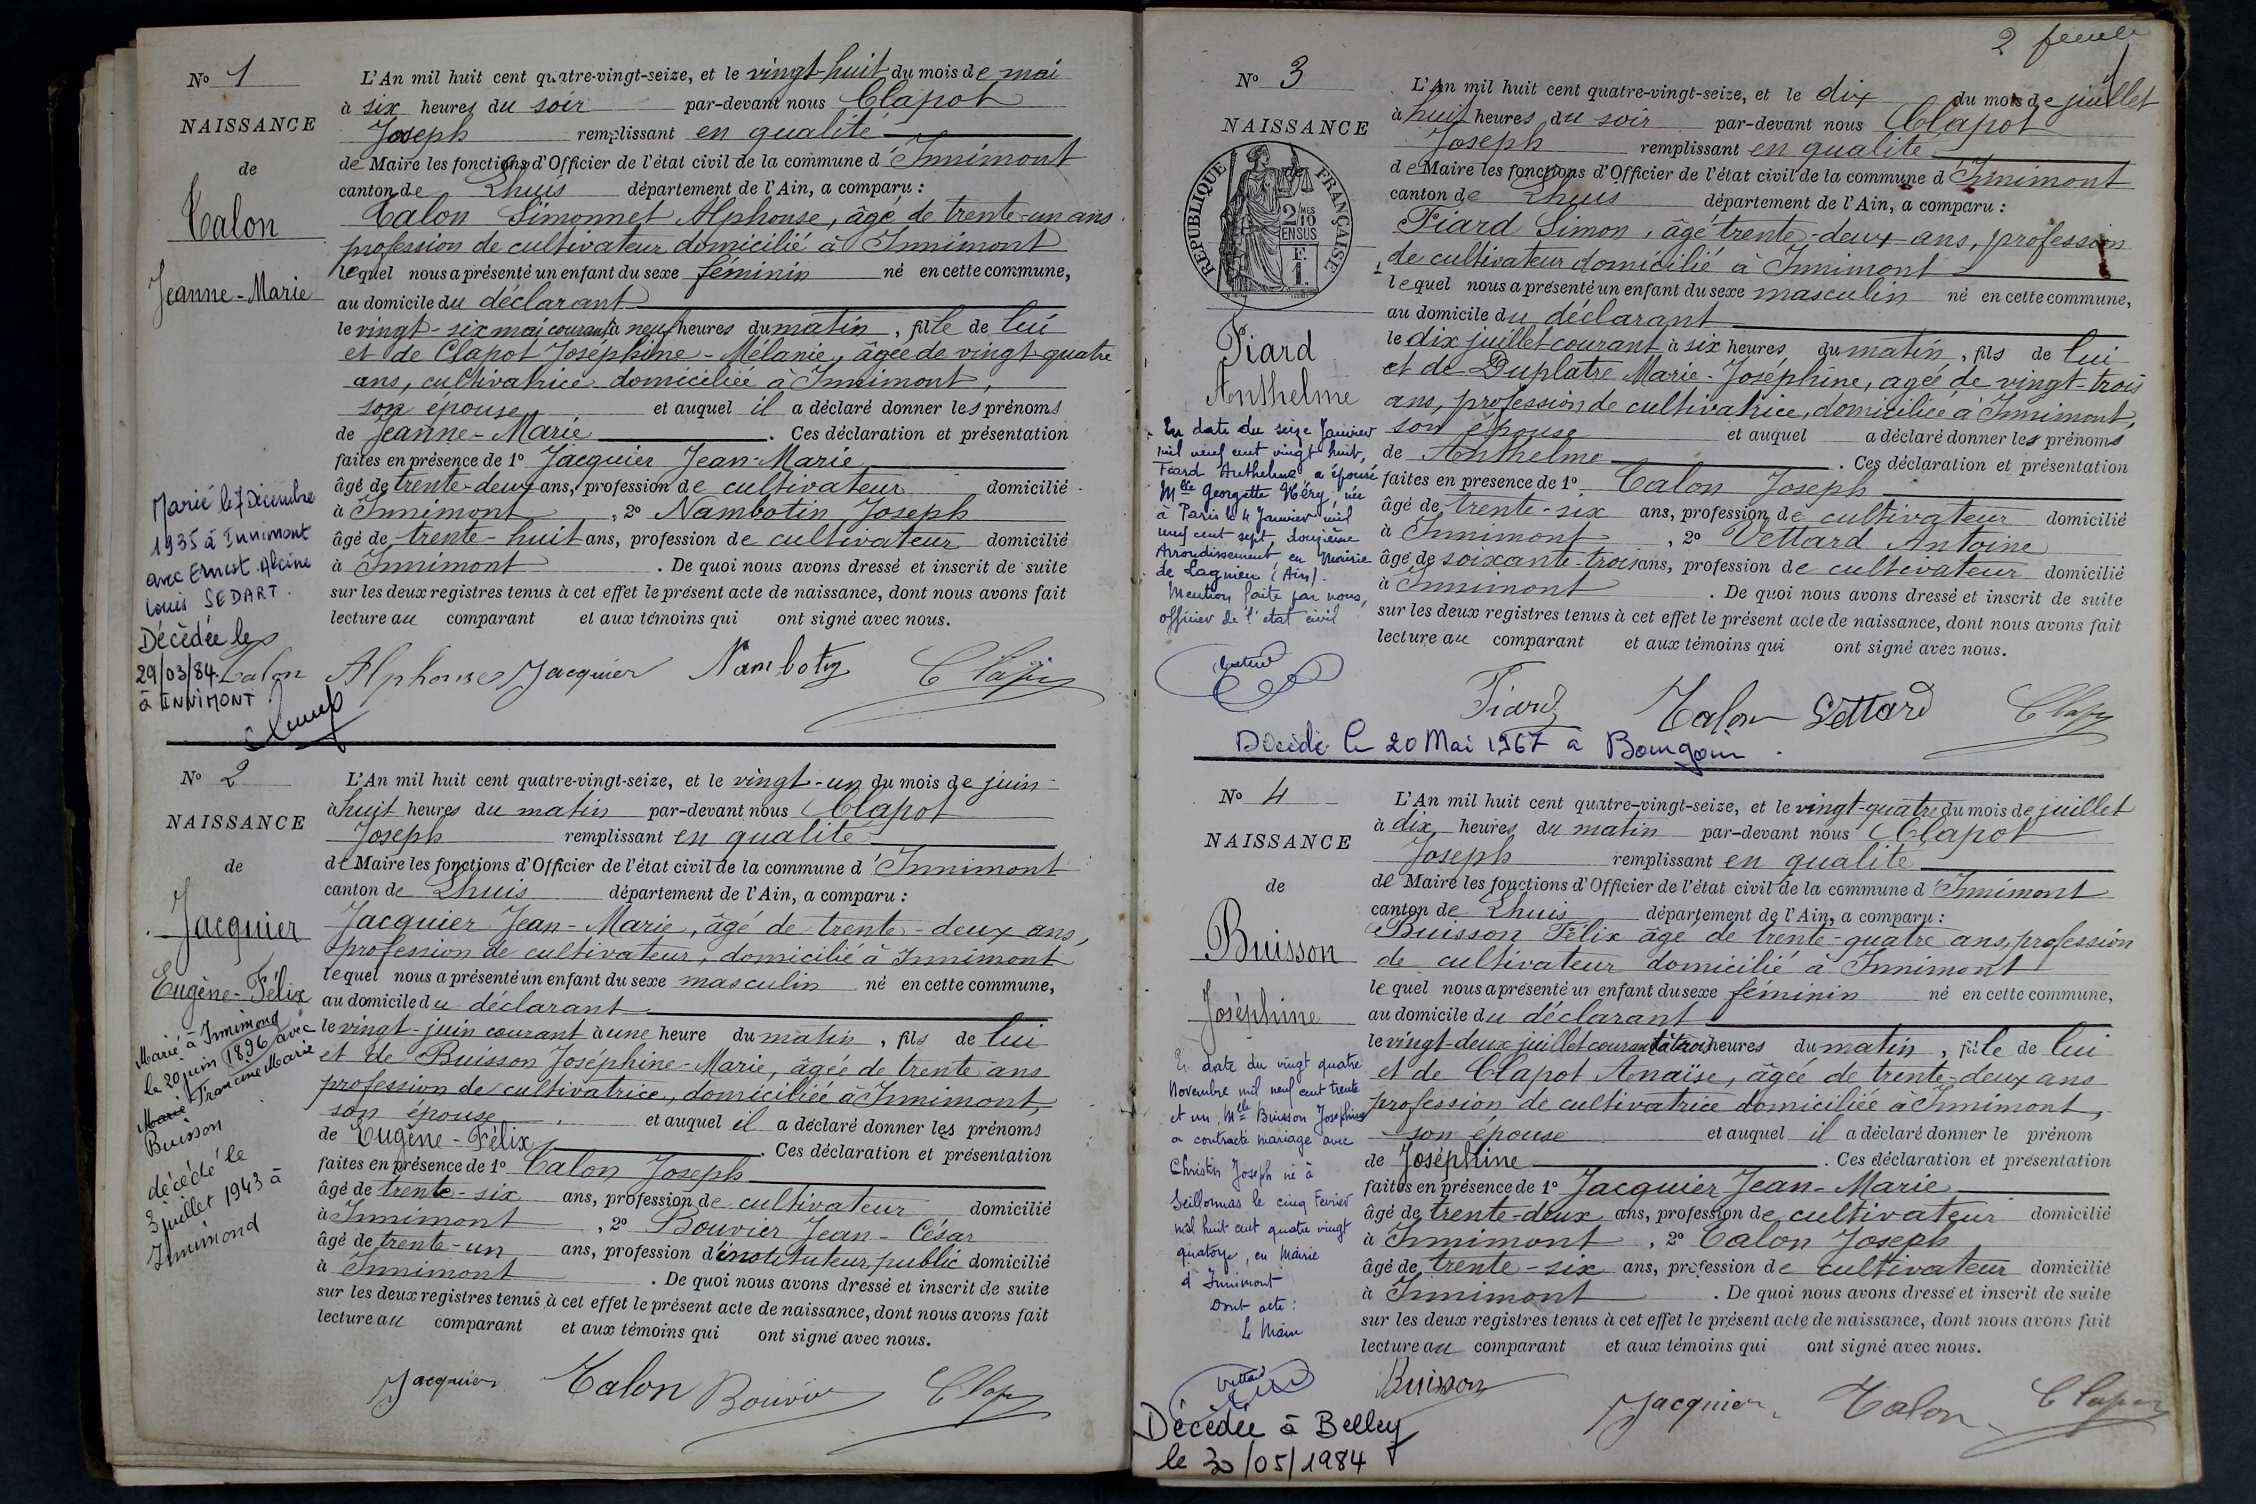 No 1
NAISSANCE
de
Talon
Jeanne-Marie
Marié le 7 Décembre
1935 à Innimont
avec Ernest Alcine
Louis SEDART.
Décèdée le
29/03/84
à INNIMONT
L'An mil huit cent quatre-vingt-seize, et le vingt-huit du mois de mai
à six heures du soir par-devant nous Clapot
Joseph remplissant en qualité
de Maire les fonctions d'Officier de l'état civil de la commune d'Innimont
canton de Lhuis département de l'Ain, a comparu :
Talon Simonnet Alphonse, âgé de trente-un ans
profession de cultivateur domicilié à Innimont
lequel nous a présenté un enfant du sexe féminin né en cette commune,
au domicile du déclarant
le vingt-six mai courant à neuf heures du matin, fille de lui
et de Clapot Joséphine-Mélanie, âgée de vingt-quatre
ans, cultivatrice domiciliée à Innimont,
son épouse et auquel il a déclaré donner les prénoms
de Jeanne-Marie. Ces déclaration et présentation
faites en présence de 1º Jacquier Jean-Marie
âgé de trente-deux ans, profession de cultivateur domicilié
à Innimont, 2º Nambotin Joseph
âgé de trente-huit ans, profession de cultivateur domicilié
à Innimont. De quoi nous avons dressé et inscrit de suite
sur les deux registres tenus à cet effet le présent acte de naissance, dont nous avons fait
lecture au comparant et aux témoins qui ont signé avec nous.
Talon Alphonse Jacquier Nambotin Clapot
No 2
NAISSANCE
de
Jacquier
Eugène-Félix
Marié à Innimond
le 20 juin 1896 avec
Marie Francine Marie
Buisson
décédé le
3 juillet 1943 à
Innimond
L'An mil huit cent quatre-vingt-seize, et le vingt-un du mois de juin
à huit heures du matin par-devant nous Clapot
Joseph remplissant en qualité
de Maire les fonctions d'Officier de l'état civil de la commune d'Innimont
canton de Lhuis département de l'Ain, a comparu :
Jacquier Jean-Marie, âgé de trente-deux ans,
profession de cultivateur, domicilié à Innimont
lequel nous a présenté un enfant du sexe masculin né en cette commune,
au domicile du déclarant
le vingt-juin courant à une heure du matin, fils de lui
et de Buisson Joséphine-Marie, âgée de trente ans
profession de cultivatrice, domiciliée à Innimont,
son épouse et auquel il a déclaré donner les prénoms
de Eugène-Félix. Ces déclaration et présentation
faites en présence de 1º Talon Joseph
âgé de trente-six ans, profession de cultivateur domicilié
à Innimont, 2º Bouvier Jean-César
âgé de trente-un ans, profession d'instituteur public domicilié
à Innimont. De quoi nous avons dressé et inscrit de suite
sur les deux registres tenus à cet effet le présent acte de naissance, dont nous avons fait
lecture au comparant et aux témoins qui ont signé avec nous.
Jacquier Talon Bouvier Clapot
No 3
NAISSANCE
de
RÉPUBLIQUE FRANÇAISE
2/10 MES
EN SUS
F.
1.
Piard
Anthelme
En date du seize Janvier
mil neuf cent vingt huit,
Piard Anthelme a épousé
Mlle Georgette Héry, née
à Paris le 4 Janvier mil
neuf cent sept, douzième
Arrondissement en Mairie
de Lagnieu (Ain).
Mention faite par nous,
officier de l'état civil
2 feuille
L'An mil huit cent quatre-vingt-seize, et le dix du mois de juillet
à huit heures du soir par-devant nous Clapot
Joseph remplissant en qualité
de Maire les fonctions d'Officier de l'état civil de la commune d'Innimont
canton de Lhuis département de l'Ain, a comparu :
Piard Simon, âgé trente-deux ans, profession
de cultivateur domicilié à Innimont
lequel nous a présenté un enfant du sexe masculin né en cette commune,
au domicile du déclarant
le dix juillet courant à six heures du matin, fils de lui
et de Duplatre Marie-Joséphine, agée de vingt-trois
ans, profession de cultivatrice, domiciliée à Innimont,
son épouse et auquel a déclaré donner les prénoms
de Anthelme. Ces déclaration et présentation
faites en présence de 1º Talon Joseph
âgé de trente-six ans, profession de cultivateur domicilié
à Innimont, 2º Vettard Antoine
âgé de soixante-trois ans, profession de cultivateur domicilié
à Innimont. De quoi nous avons dressé et inscrit de suite
sur les deux registres tenus à cet effet le présent acte de naissance, dont nous avons fait
lecture au comparant et aux témoins qui ont signé avec nous.
Piard Talon Vettard Clapot
Décèdé le 20 Mai 1967 à Bourgoin.
No 4
NAISSANCE
de
Buisson
Joséphine
En date du vingt quatre
Novembre mil neuf cent trente
et un, Mlle Buisson Joséphine
a contracté mariage avec
Christin Joseph né à
Seillonnas le cinq Fevrier
mil huit cent quatre vingt
quatorze, en Mairie
d'Innimont
Dont acte :
Le Maire
Vettard
Décèdée à Belley
le 30/05/1984
L'An mil huit cent quatre-vingt-seize, et le vingt-quatre du mois de juillet
à dix heures du matin par-devant nous Clapot
Joseph remplissant en qualité
de Maire les fonctions d'Officier de l'état civil de la commune d'Innimont
canton de Lhuis département de l'Ain, a comparu :
Buisson Félix âgé de trente-quatre ans, profession
de cultivateur domicilié à Innimont
lequel nous a présenté un enfant du sexe féminin né en cette commune,
au domicile du déclarant
le vingt-deux juillet courant à trois heures du matin, fille de lui
et de Clapot Anaïse, âgée de trente-deux ans
profession de cultivatrice domiciliée à Innimont,
son épouse et auquel il a déclaré donner le prénom
de Joséphine. Ces déclaration et présentation
faites en présence de 1º Jacquier Jean-Marie
âgé de trente-deux ans, profession de cultivateur domicilié
à Innimont, 2º Talon Joseph
âgé de trente-six ans, profession de cultivateur domicilié
à Innimont. De quoi nous avons dressé et inscrit de suite
sur les deux registres tenus à cet effet le présent acte de naissance, dont nous avons fait
lecture au comparant et aux témoins qui ont signé avec nous.
Buisson Jacquier Talon Clapot